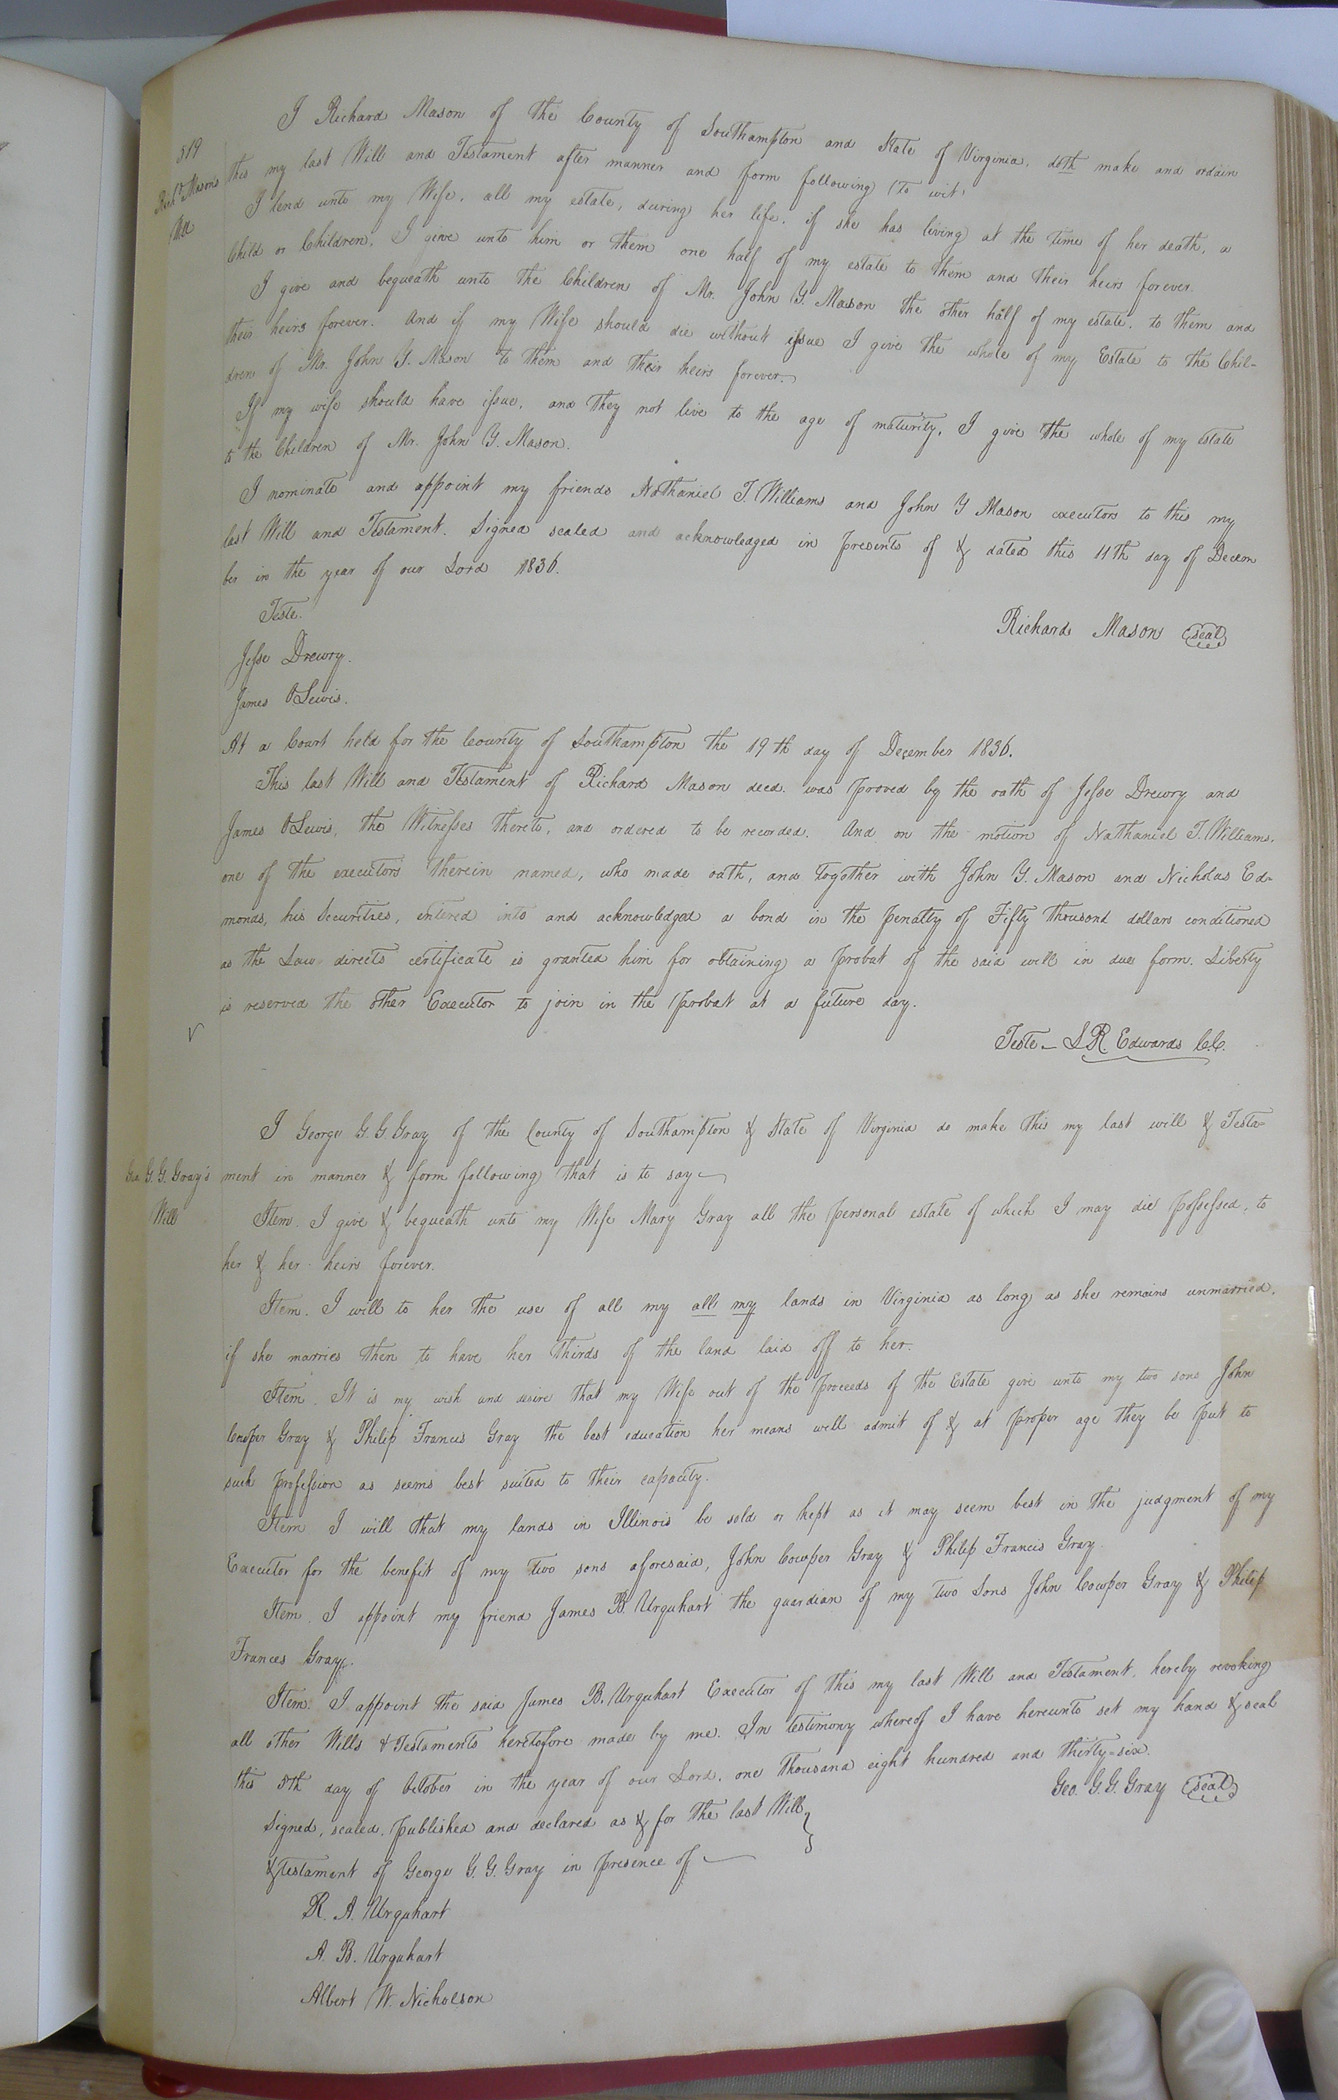 I Richard Mason of the County of Southampton and State of Virginia, doth make and ordain
519
this my last Will and Testament after manner and form following (To wit,
Richd. Mason's
Will
I lend unto my Wife, all my estate, during her life, if she has living at the time of her death, a
Child or Children, I give unto him or them one half of my estate to them and their heirs forever.
I give and bequeath unto the Children of Mr. John Y. Mason the other half of my estate, to them and
their heirs forever. And if my Wife should die without issue I give the whole of my Estate to the Chil-
dren of Mr. John Y. Mason to them and their heirs forever.
If my wife should have issue, and they not live to the age of maturity, I give the whole of my estate
to the Children of Mr. John Y. Mason.
I nominate and appoint my friends Nathaniel T. Williams and John Y Mason executors to this my
last Will and Testament. Signed sealed and acknowledged in presents of & dated this 11th day of Decem
ber in the year of our Lord 1836.
Teste.
Richard Mason seal
Jesse Drewry.
James OLewis.
At a Court held for the County of Southampton the 19th day of December 1836.
This last Will and Testament of Richard Mason decd. was proved by the oath of Jesse Drewry and
James OLewis, the Witnesses thereto, and ordered to be recorded. And on the motion of Nathaniel T. Williams,
one of the executors therein named, who made oath, and together with John Y. Mason and Nicholas Ed-
monds, his Securities, entered into and acknowledged a bond in the penalty of Fifty thousand dollars conditioned
as the Law directs certificate is granted him for obtaining a probat of the said will in due form. Liberty
is reserved the other Executor to join in the probat at a future day.
Teste - L R. Edwards C.C.
I George G. G. Gray of the County of Southampton & State of Virginia do make this my last will & Testa-
Geo. G. G. Gray's
Will
ment in manner & form following that is to say
Item. I give & bequeath unto my Wife Mary Gray all the personal estate of which I may die possessed, to
her & her heirs forever.
Item. I will to her the use of all my all my lands in Virginia as long as she remains unmarried,
if she marries then to have her thirds of the land laid off to her.
Item. It is my wish and desire that my Wife out of the proceeds of the Estate give unto my two sons John
Cowper Gray & Philip Francis Gray the best education her means will admit of & at proper age they be put to
such profession as seems best suited to their capacity.
Item. I will that my lands in Illinois be sold or kept as it may seem best in the judgment of my
Executor for the benefit of my two sons aforesaid, John Cowper Gray & Philip Francis Gray
Item. I appoint my friend James B. Urquhart the guardian of my two Sons John Cowper Gray & Philip
Frances Gray.
Item. I appoint the said James B. Urquhart Executor of this my last Will and Testament, hereby revoking
all other Wills & Testaments heretofore made by me. In testimony whereof I have hereunto set my hand & seal
this 5th day of October in the year of our Lord, one thousand eight hundred and thirty-six.
Geo. G. G. Gray seal
Signed, sealed, published and declared as & for the last Will
& testament of George G. G. Gray in presence of
R. A. Urquhart
A. B. Urquhart
Albert W. Nicholson